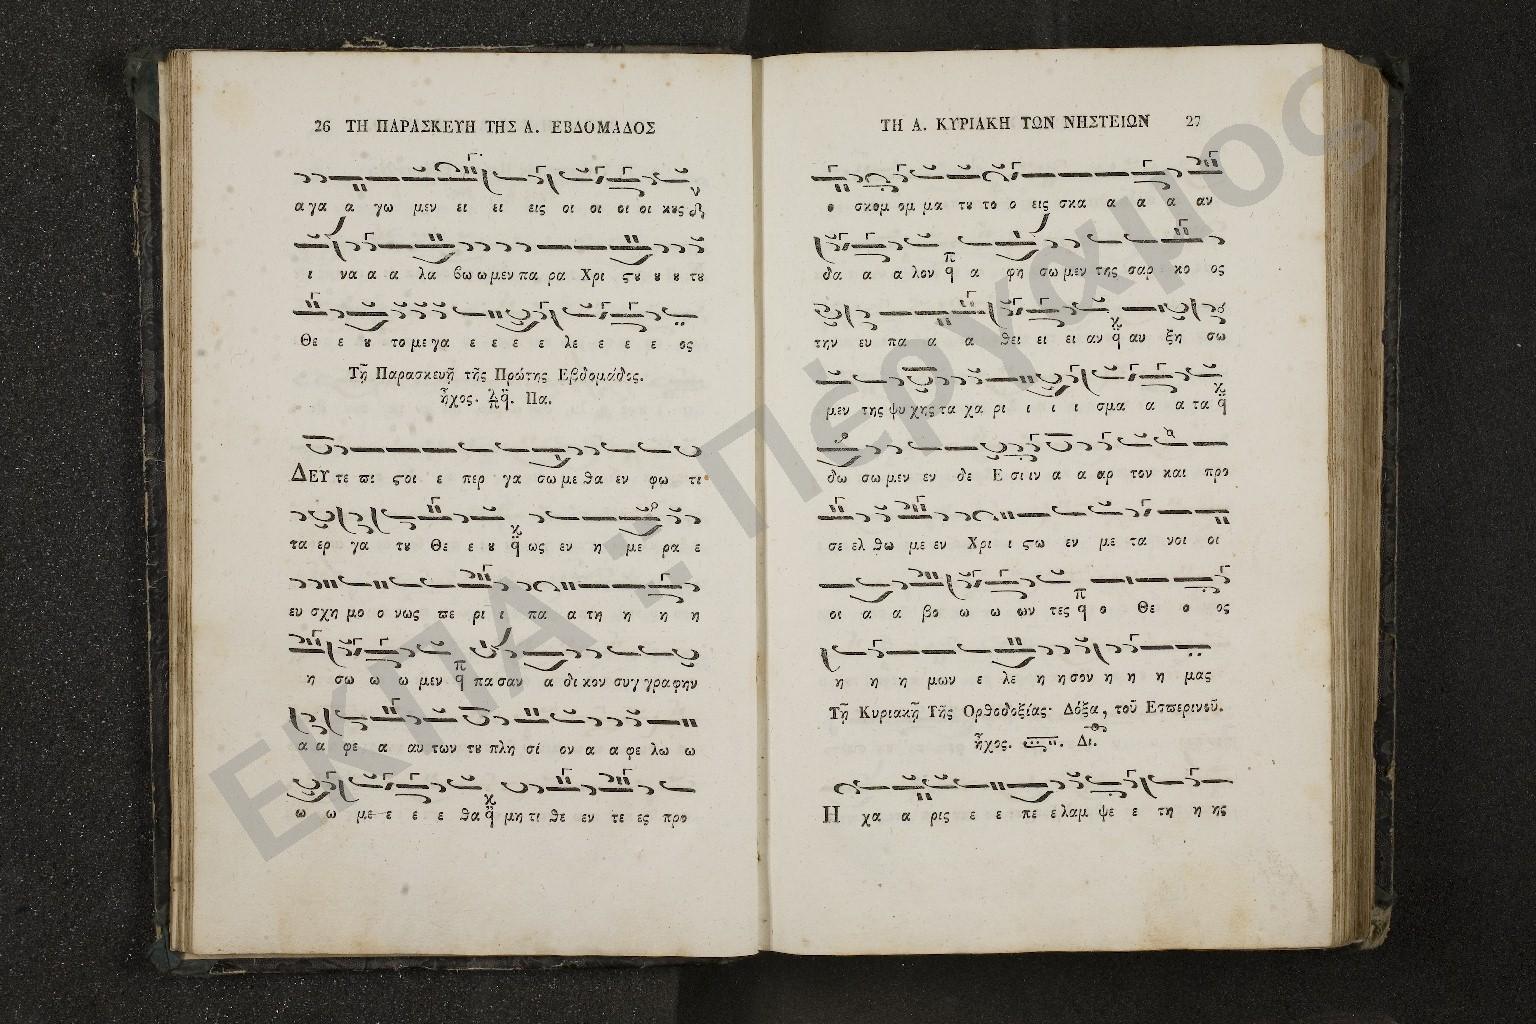 26 ΤΗ ΠΑΡΑΣΚΕΥΗ ΤΗΣ Α. ΕΒΔΟΜΑΔΟΣ
α γα α γω μεν ει ει εις οι οι οι οι κȣς
ι να α α λα βω ω μεν πα ρα Χρι ϛȣ ȣ ȣ τȣ
Θε ε ȣ το με γα ε ε ε ε λε ε ε ε ος
Τῇ Παρασκευῇ τῆς Πρώτης Εβδομάδος.
ἦχος. Πα.
ΔΕΥ τε πι ϛοι ε περ γα σω με θα εν φω τι
τα ερ γα τȣ Θε ε ȣ ως εν η με ρα ε
ευ σχη μο ο νως πε ρι ι πα α τη η η η
η σω ω ω μεν πα σαν α δι κον συγ γρα φην
α α φε α αυ των τȣ πλη σί ον α α φε λω ω
ω ω με ε ε ε θα μη τι θε εν τε ες προ
ΤΗ Α. ΚΥΡΙΑΚΗ ΤΩΝ ΝΗΣΤΕΙΩΝ 27
ο σκομ ομ μα τȣ το ο εις σκα α α α αν
δα α α λον α φη σω μεν της σαρ κο ος
την ευ πα α α θει ει ει αν αυ ξη σω
μεν της ψυ χης τα χα ρι ι ι ι σμα α α τα
δω σω μεν εν δε Ε σι ιν α α αρ τον και προ
σε ελ θω με εν Χρι ι ϛω εν με τα νοι οι
οι α α βο ω ω ων τες ο Θε ο ος
η η η μων ε λε η η σον η η η μας
Τῇ Κυριακῇ Τῆς Ορθοδοξίας· Δόξα, τοῦ Εσπερινοῦ.
ἦχος. Δι.
Η χα α ρις ε ε πε ε λαμ ψε ε τη η ης
ΕΚΠΑ :: Πέργαμος